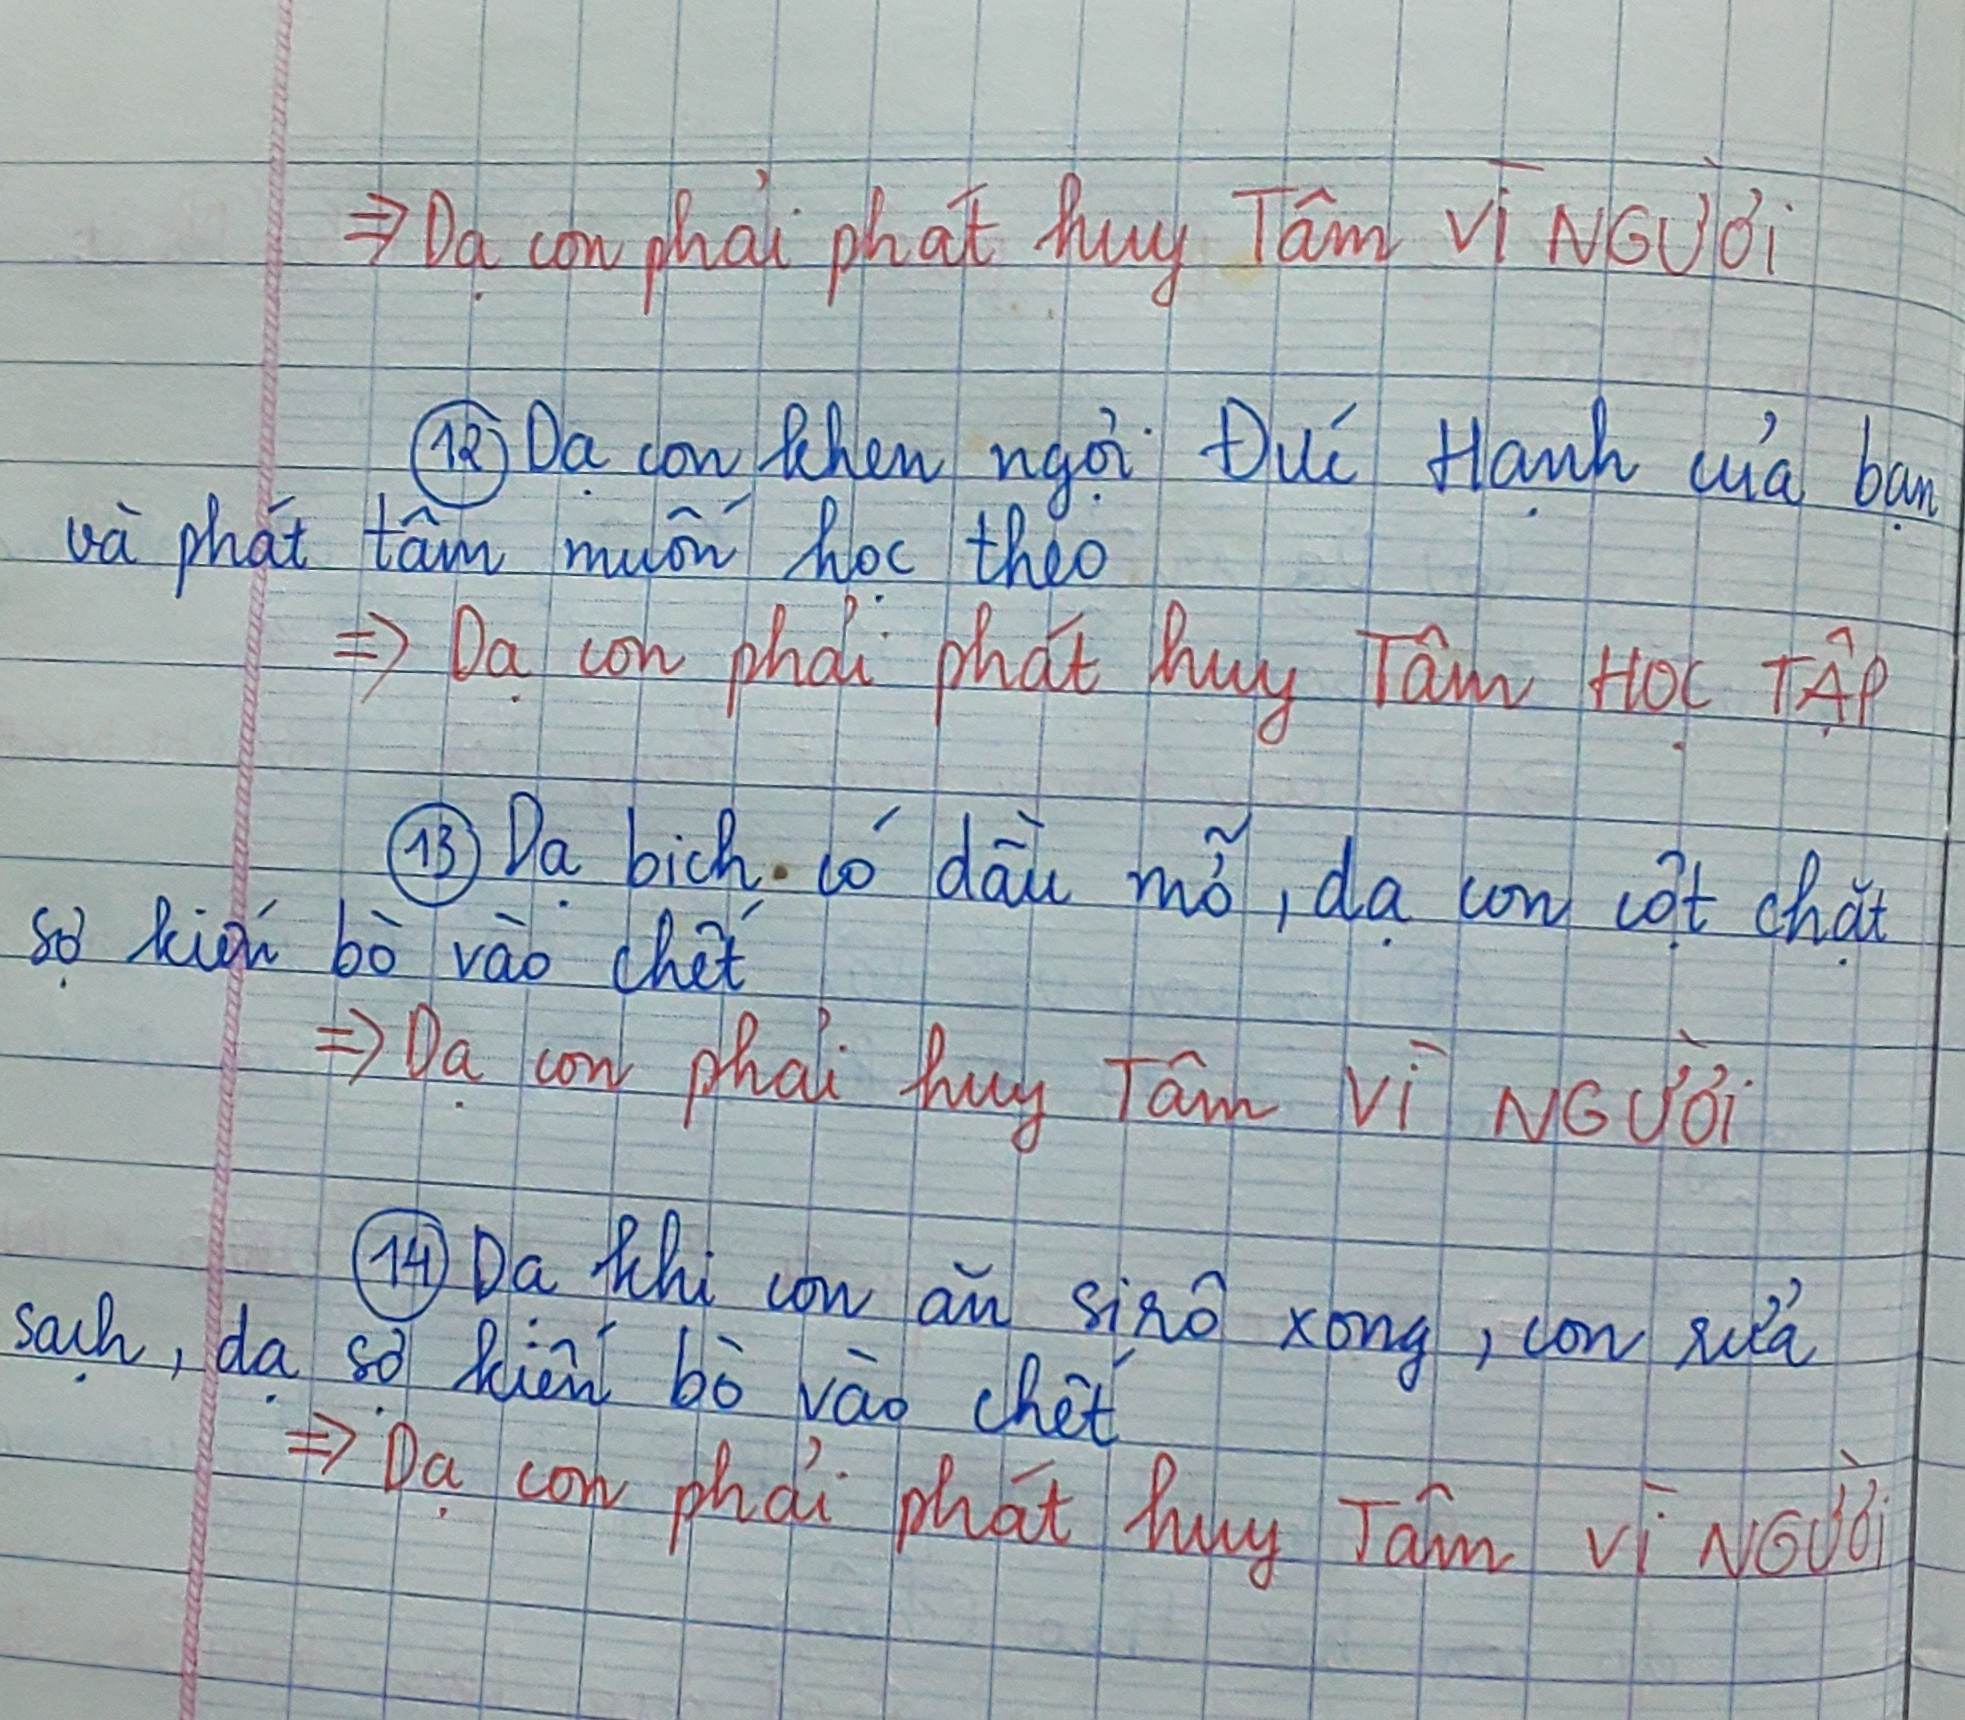 ⇒ Dạ con phải phát huy Tâm VÌ NGƯỜI
⑫ Dạ con khen ngợi Đức Hạnh của bạn
và phát tâm muốn học theo
⇒ Dạ con phải phát huy Tâm HỌC TẬP
⑬ Dạ bịch có dầu mỡ, dạ con cột chặt
sợ kiến bò vào chết
⇒ Dạ con phải huy Tâm VÌ NGƯỜI
⑭ Dạ khi con ăn sirô xong, con rửa
sạch, dạ sợ kiến bò vào chết
⇒ Dạ con phải phát huy Tâm VÌ NGƯỜI